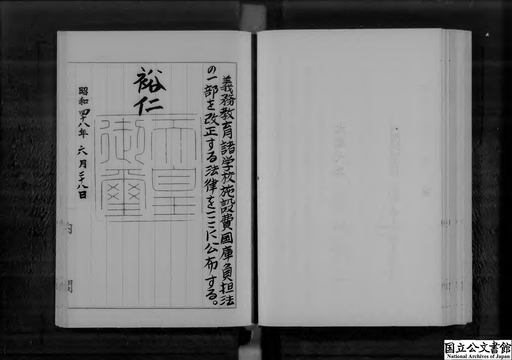 義務教育諸学校施設費国庫負担法
の一部を改正する法律をここに公布する。
裕仁
天皇
御璽
昭和四十八年 六月二十八日
国立公文書館
National Archives of Japan